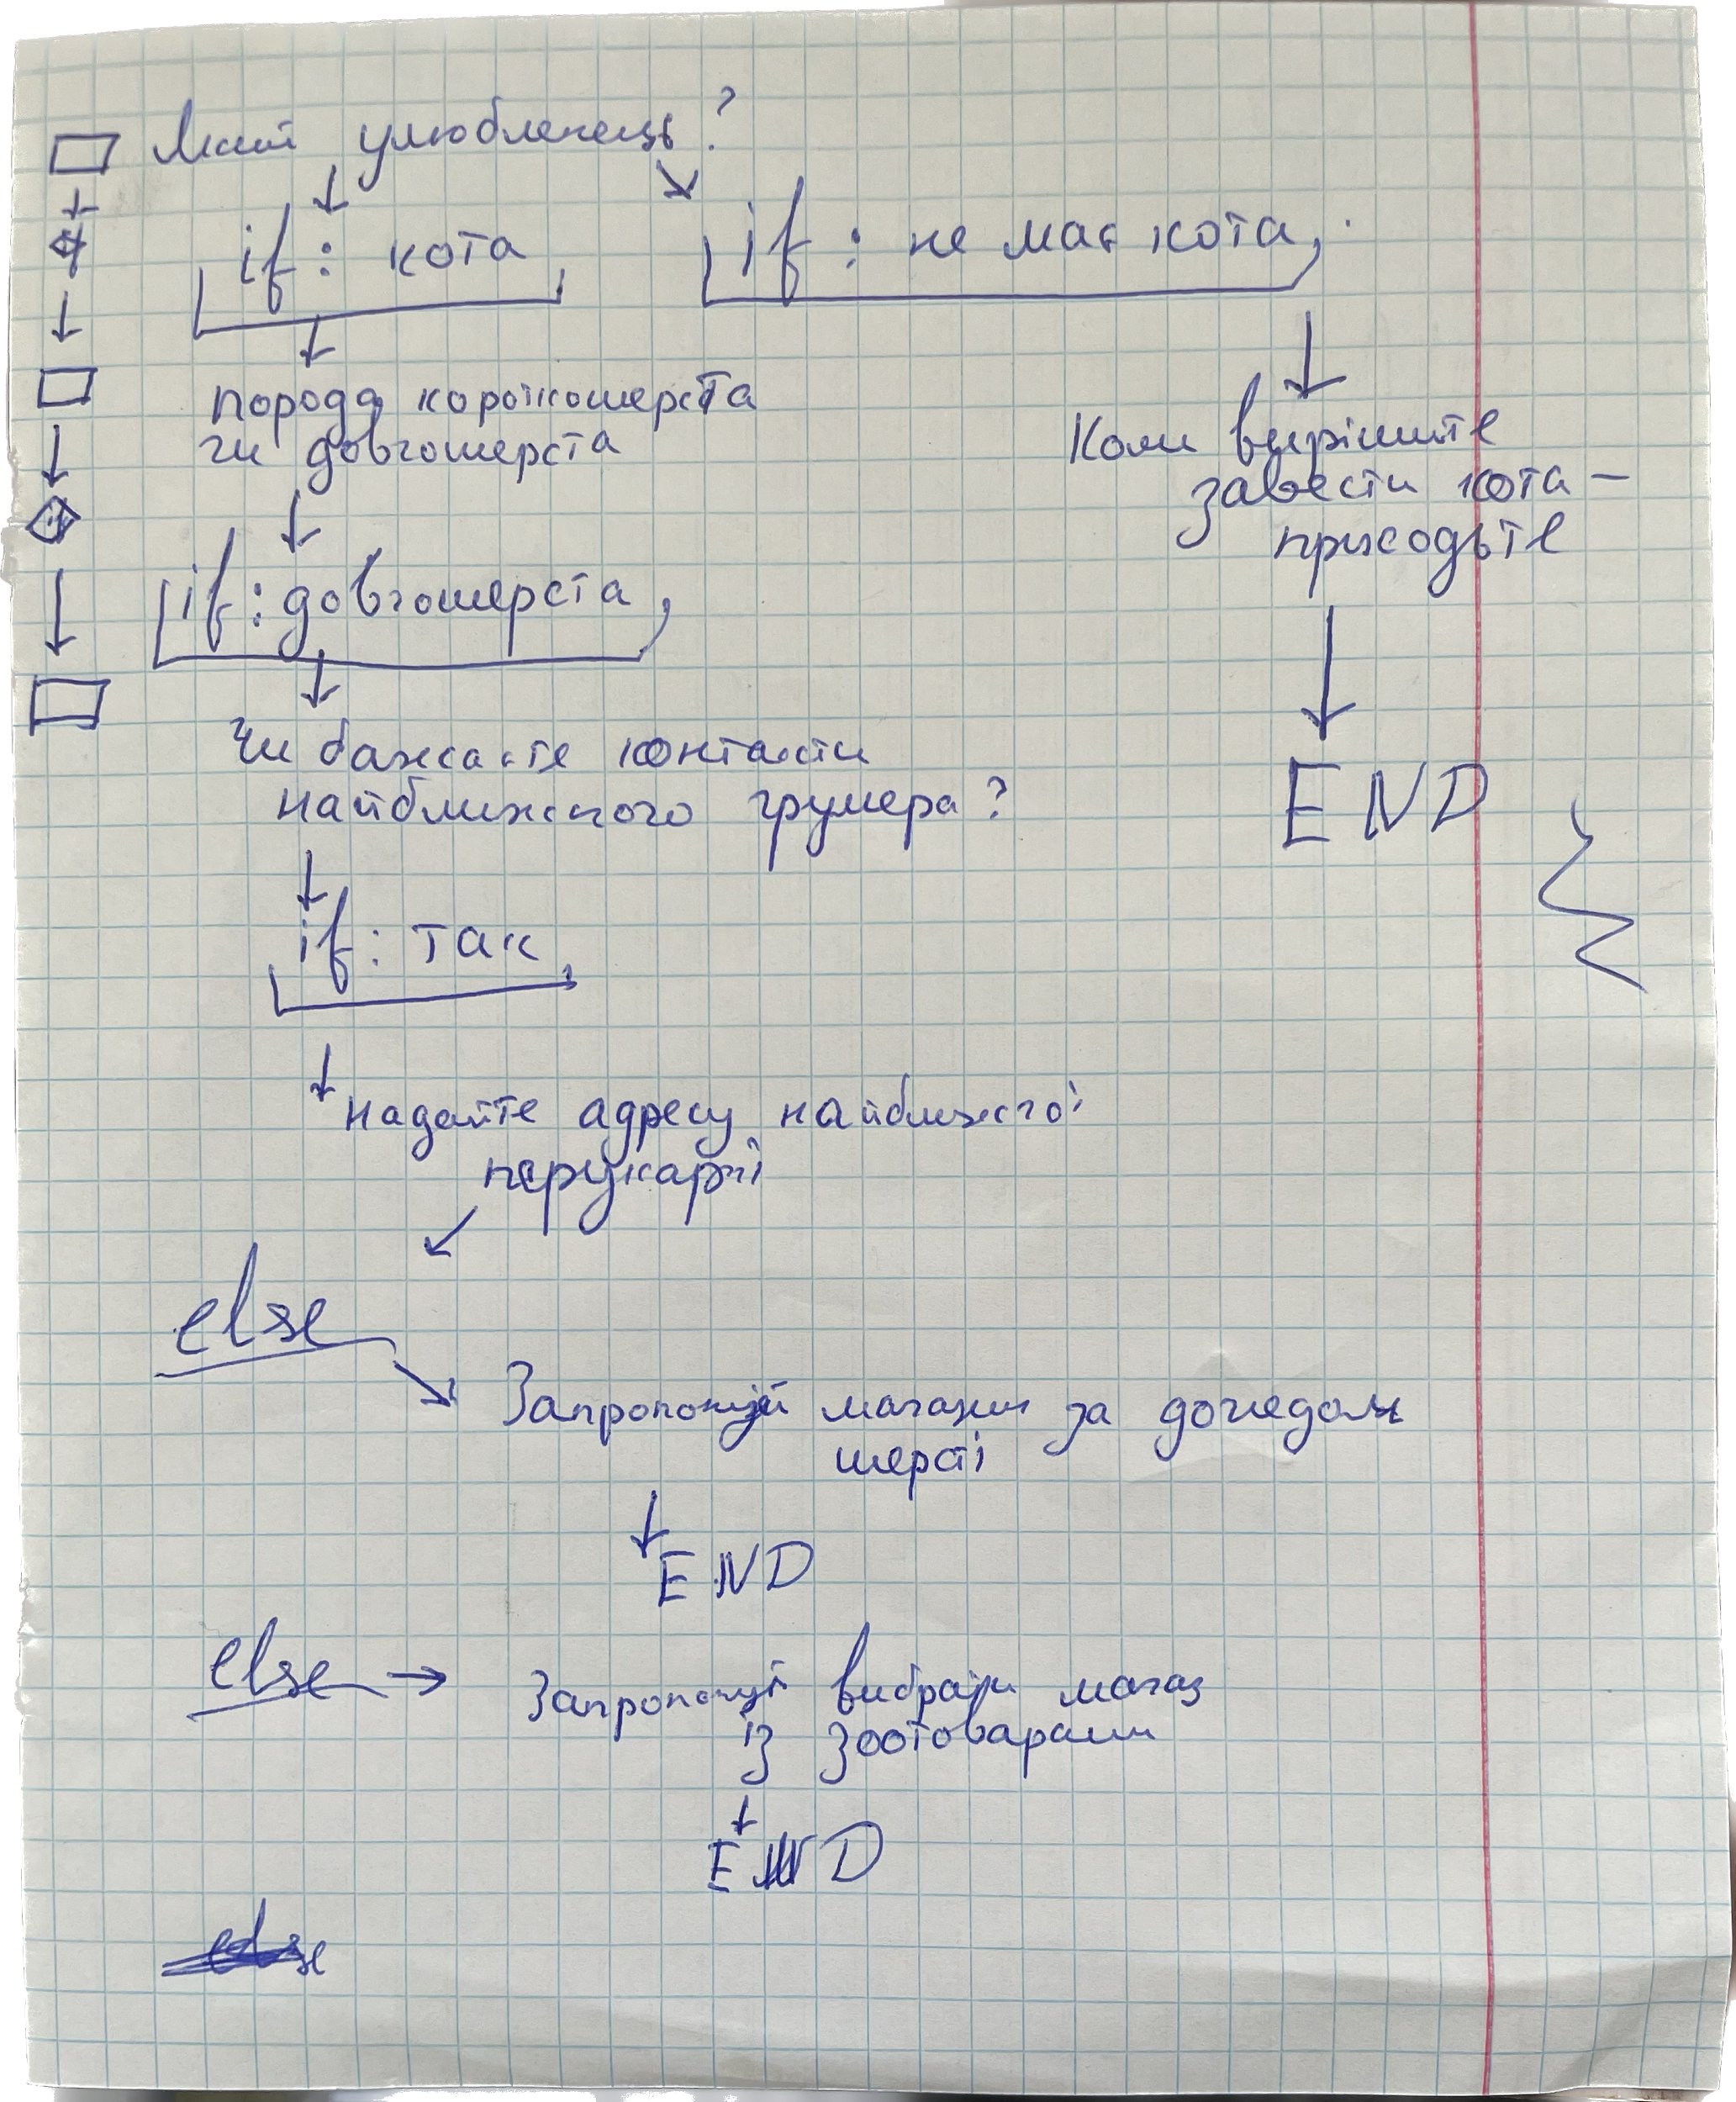 Який улюбленець?
if: кота
if: не має кота
порода короткошерста
чи довгошерста
Коли вирішите
завести кота –
приходьте
if: довгошерста
Чи бажаєте контакти
найближчого грумера?
END
if: так
надайте адресу найближчої
перукарні
else
Запропонуй магазин за доглядом
шерсті
END
else → Запропонуй вибрати магаз
із зоотоварами
END
else